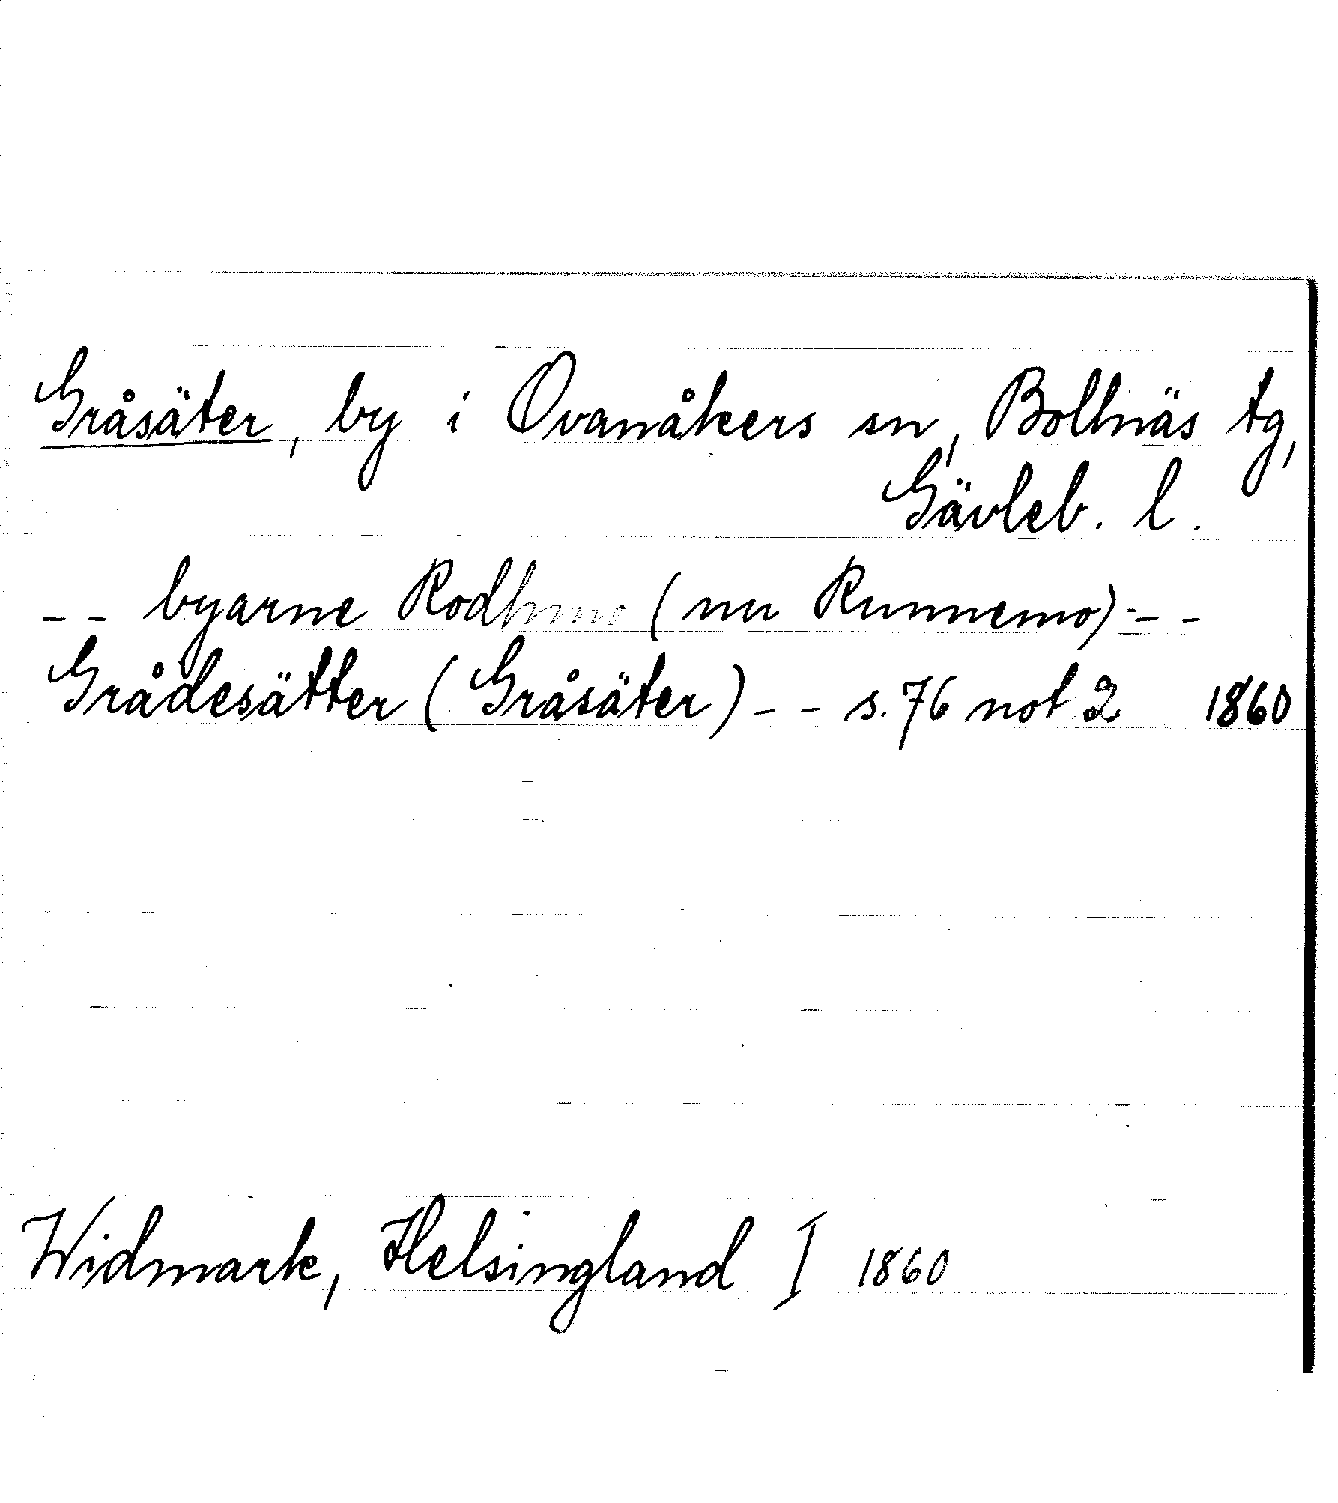 Gråsäter, by i Ovanåkers sn, Bollnäs tg,
Gävleb. l.
-- byarne Rodhmo (nu Runnemo) --
Grådesätter (Gråsäter) -- s. 76 not 2 1860
Widmark, Helsingland I 1860